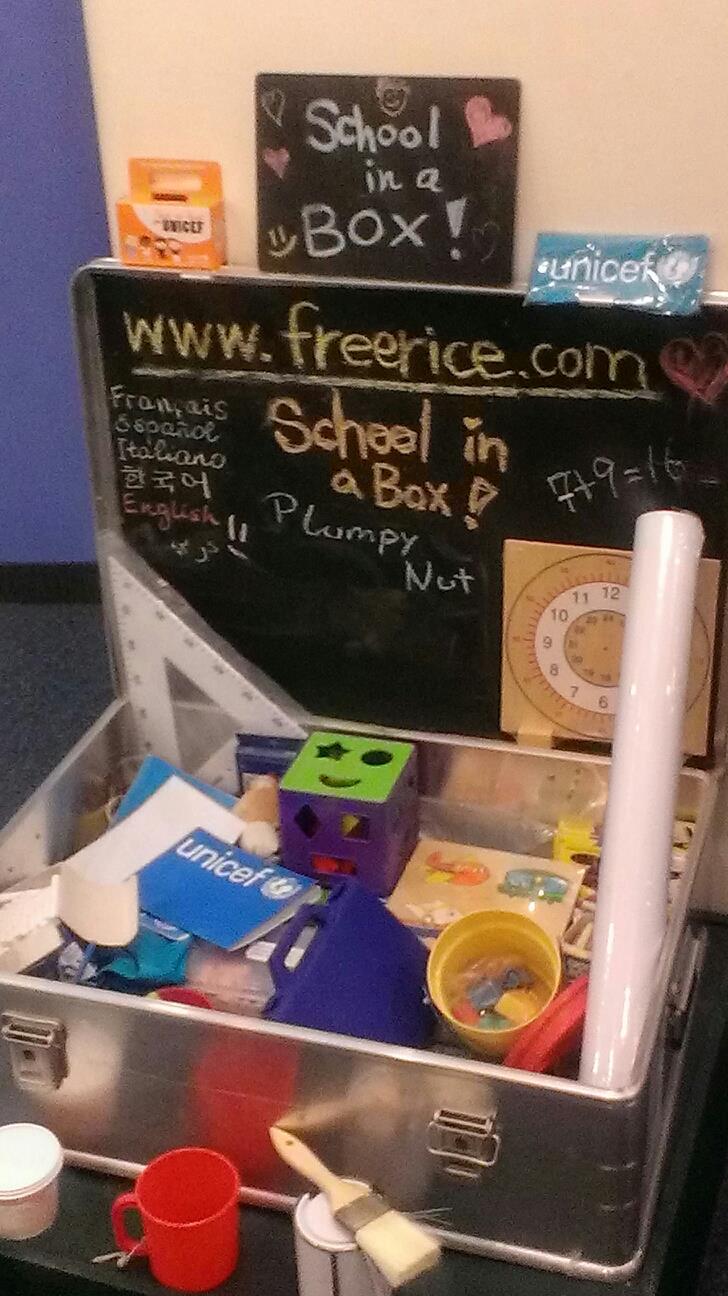 School
in a
BOX!
UNICEF
unicef
www.freerice.com
Français
Español
Italiano
한국어
English
School in
a Box!
7+9=16
Plumpy
Nut
11 12
10
9
8
7
6
unicef